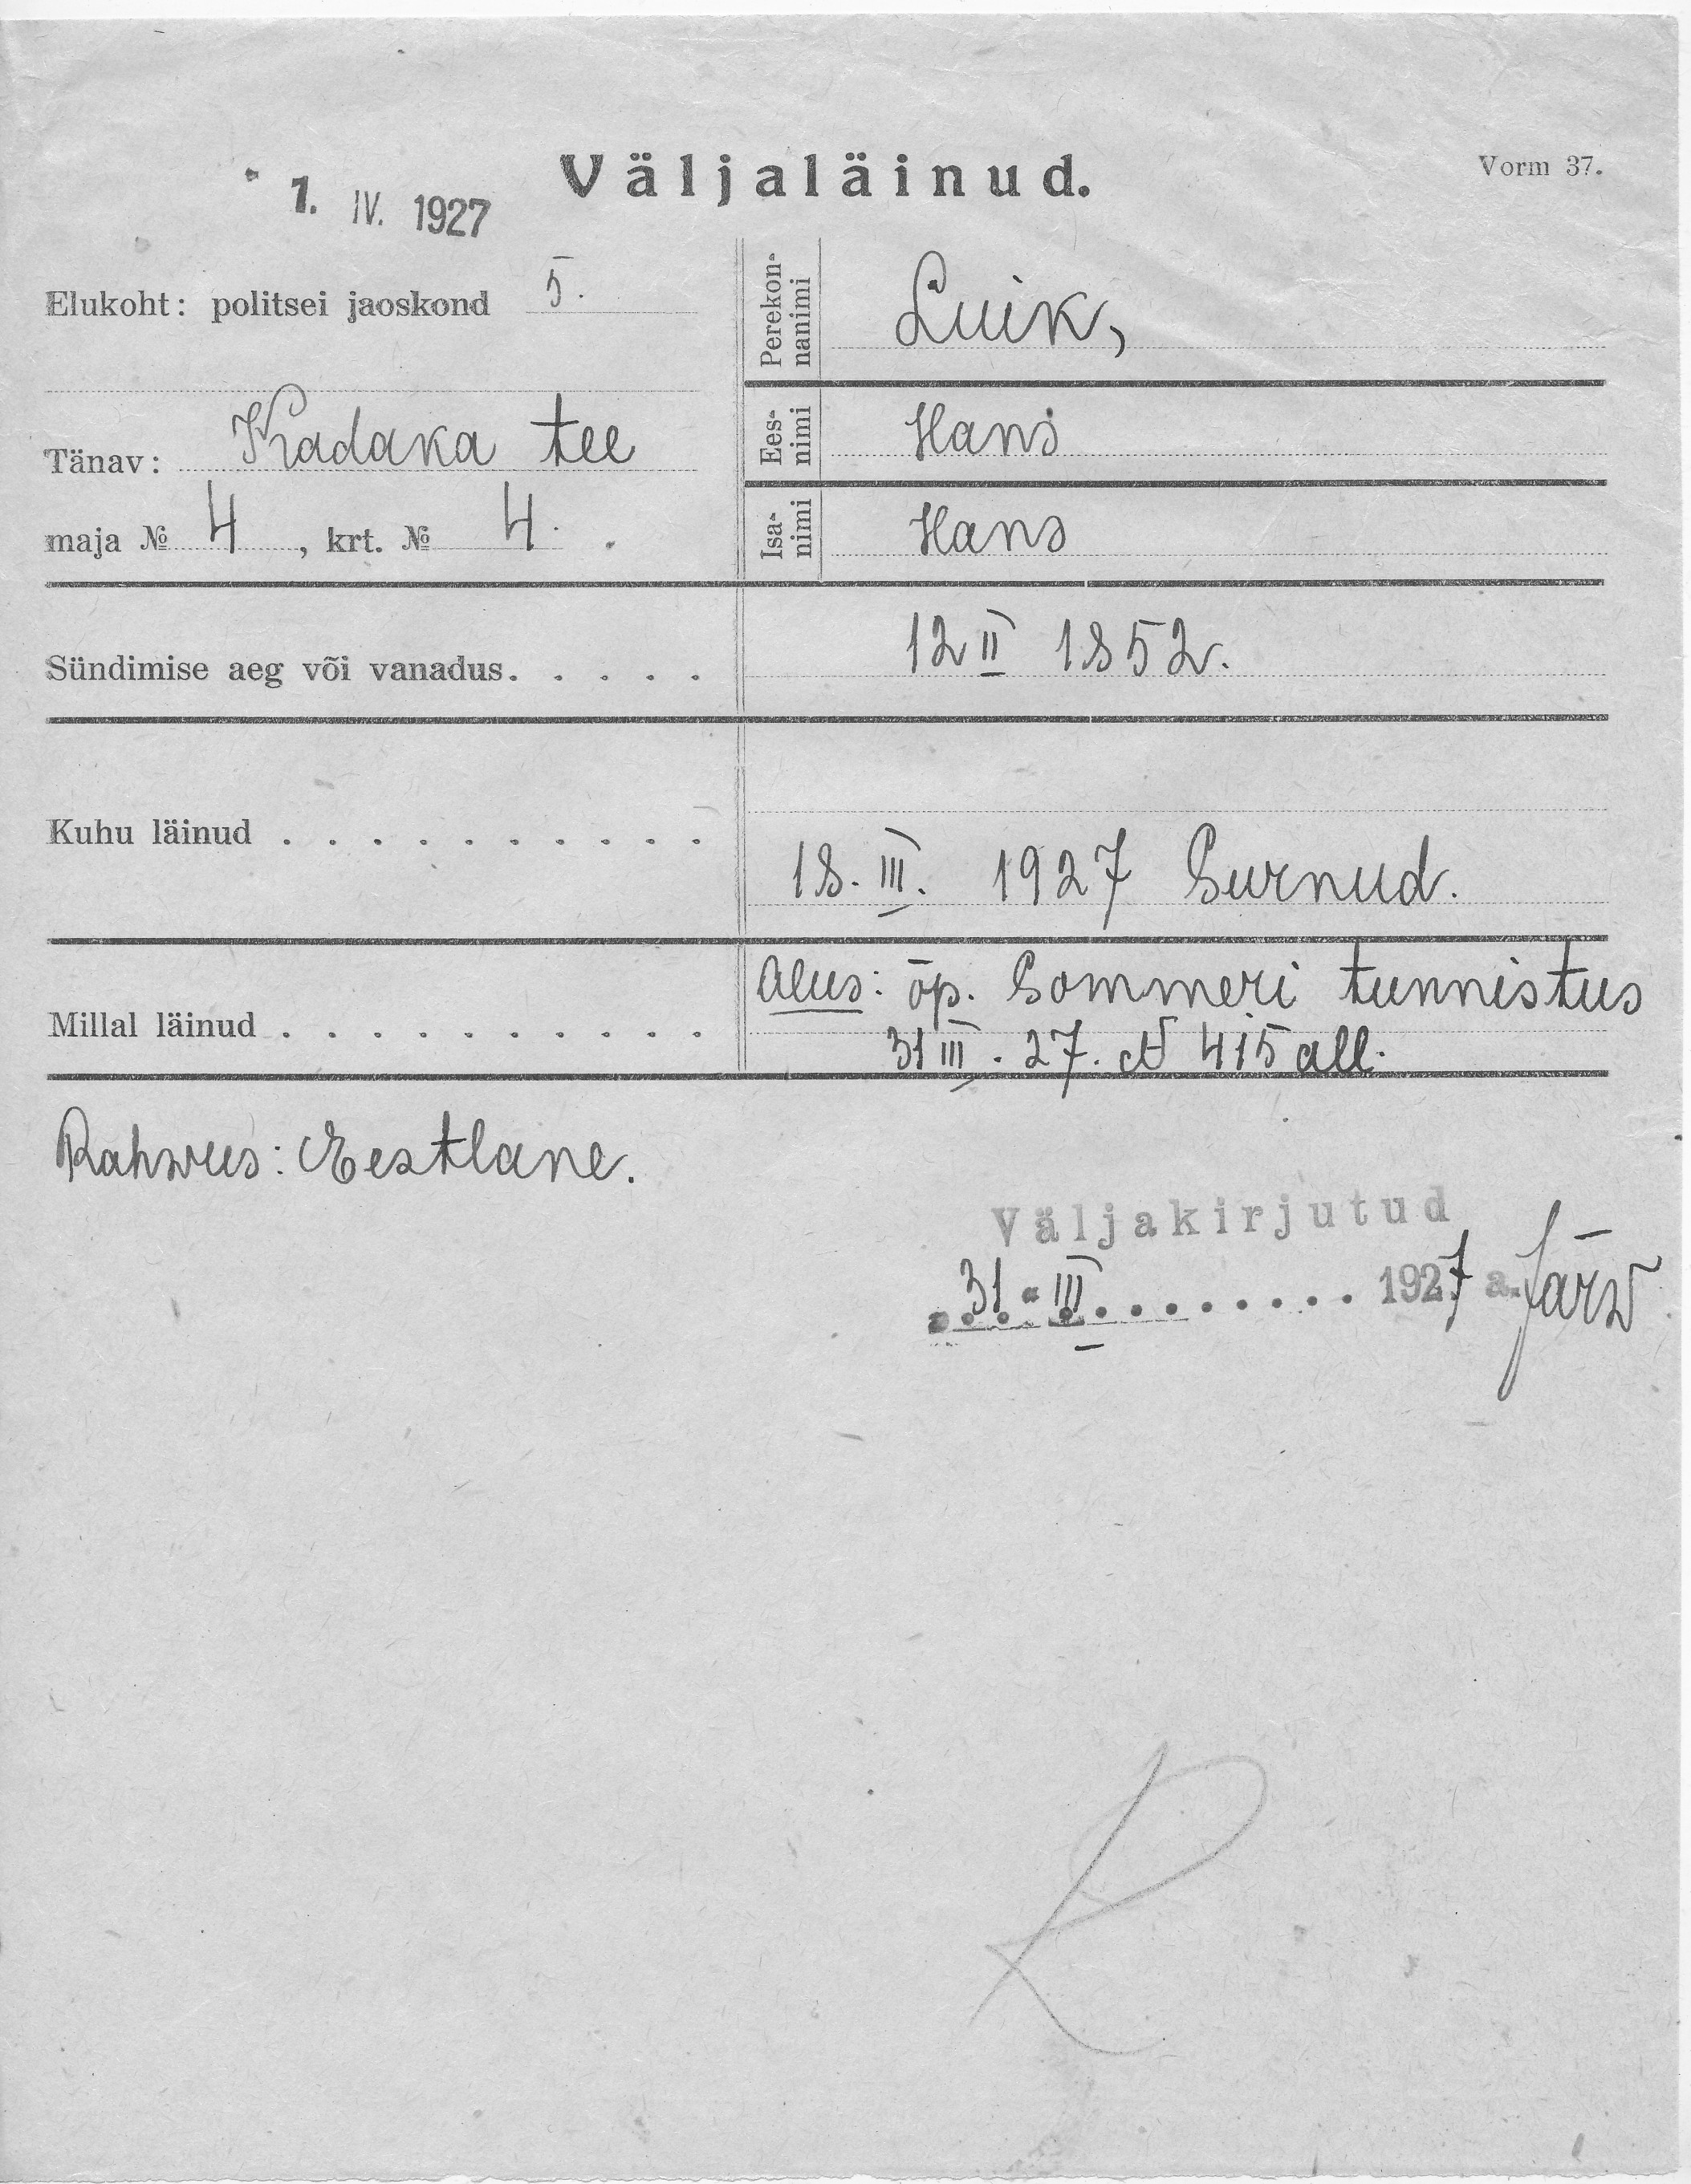 Väljaläinud.
Vorm 37.
1. IV. 1927
Elukoht: politsei jaoskond 5.
Tänav: Kadaka tee
maja № 4, krt. № 4.
Perekon-
nanimi
Luik,
Ees-
nimi
Hans
Isa-
nimi
Hans
Sündimise aeg või vanadus. . . . .
12 II 1852.
Kuhu läinud . . . . . . . . . .
18. III. 1927 Surnud.
Millal läinud . . . . . . . . . .
Alus: õp. Sommeri tunnistus
31 III. 27. N 415 all.
Rahwus: Eestlane.
Väljakirjutud
31. III . . . . . . . . 1927 a. Järw
R